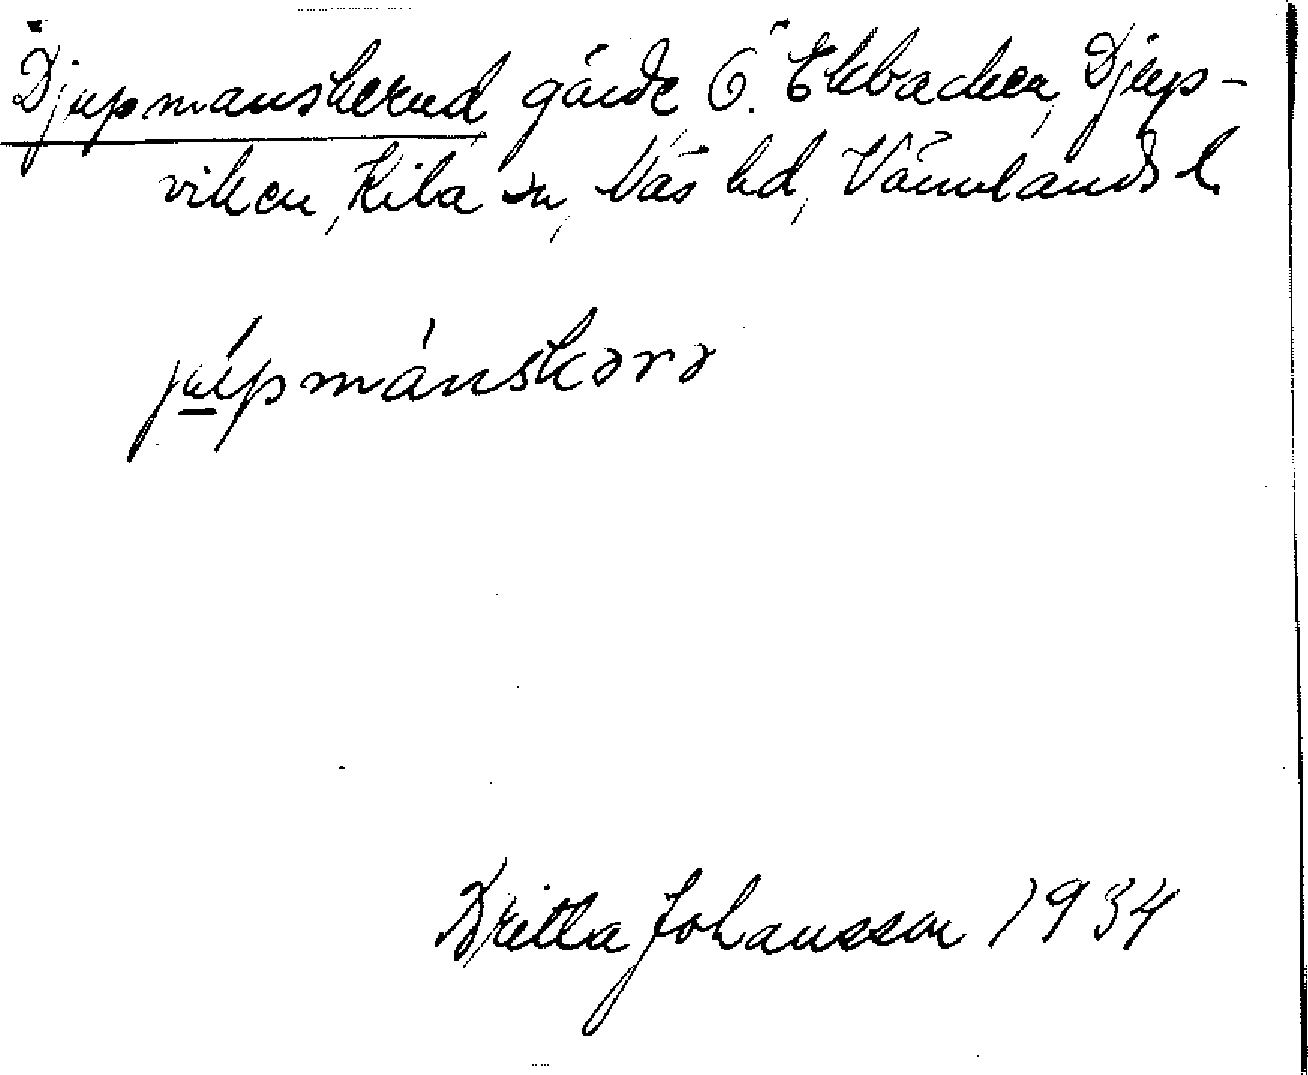 Djupmanskerud, gärde Ö. Ekbacken, Djup-
viken, Kila sn, Näs hd, Värmlands l.
júpmánskərə
Britta Johansson 1934